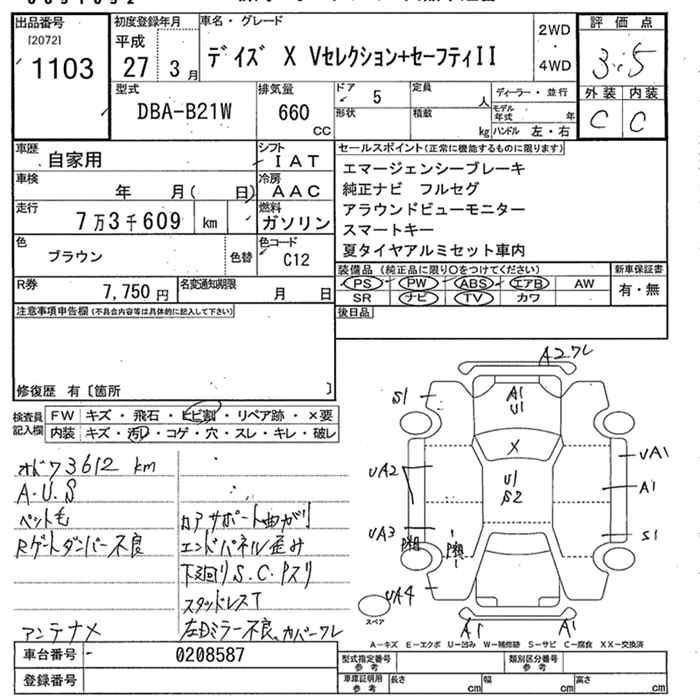 出品番号 初度登録年月 車名・グレード 評価点
[2072] 平成 2WD
1103 27 3月 デイズ X Vセレクション+セーフティII ・ 3.5
4WD
型式 排気量 ドア 5 定員 人 ディーラー・並行 外装 内装
DBA-B21W 660 CC 形状 積載 kg モデル年式 年 C C
ハンドル 左・右
車歴 自家用 シフト IAT セールスポイント(正常に機能するものに限ります)
車検 年 月( 日) 冷房 AAC エマージェンシーブレーキ
走行 7万3千609 km 燃料 ガソリン 純正ナビ フルセグ
アラウンドビューモニター
スマートキー
色 ブラウン 色替 色コード C12 夏タイヤアルミセット車内
R券 7,750円 名変通知期限 月 日 装備品(純正品に限り○をつけてください) 新車保証書
PS PW ABS エアB AW 有・無
SR ナビ TV カワ
注意事項申告欄(不具合内容等は具体的に記入して下さい) 後日品
修復歴 有〔箇所 〕
検査員記入欄 FW キズ・飛石・ヒビ割・リペア跡・×要
内装 キズ・汚レ・コゲ・穴・スレ・キレ・破レ
オドク73612km
A.U.S
ペット毛 カアサポート曲がり
Rゲートダンパー不良 エンドパネル歪み
下廻りS.C.Pスリ
スタッドレスT
アンテナメ 左Dミラー不良、カバーワレ
A2ワレ
S1 A1 U1
X UA1
UA2 U1 S2 A1
UA3 S1
UA4
スペア
A1 A1
A-キズ E-エクボ U-凹み W-補修跡 S-サビ C-腐食 XX-交換済
車台番号 0208587
登録番号
型式指定番号 参考 類別区分番号 参考
車庫証明用 参考 長さ cm 幅 cm 高さ cm